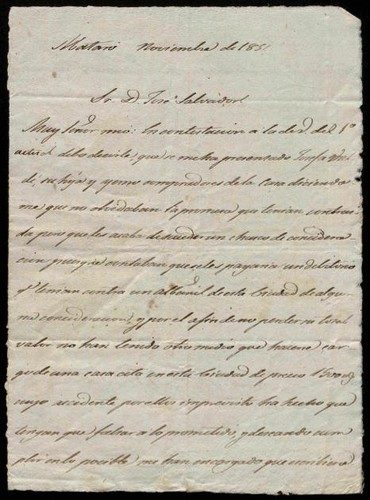 Mataró Noviembre de 185
Sr. D. José Salvador
Muy Señor mio: En contestacion a la de V. del 1º
actual debo decirle, que se me ha presentado Josefa
de, su hija y yerno compradores de la Casa diciendo
me que no olvidaban la promesa que tenian contrai
da pero que les acaba de suceder un chasco de considera
cion pues que contaban que se les pagaria un debitorio
qe tenian contra un Albañil de esta Ciudad de algu
na consideracion, y por el afin de no perder su total
valor no han tenido otro medio que hacerse car
go de una casa cita en esta Ciudad de precio 1500
cuyo accidente para ellos imprevisto ha hecho que
tengan que faltar a lo prometido, y deseando cum
plir en lo posible me han encargado que escribiera